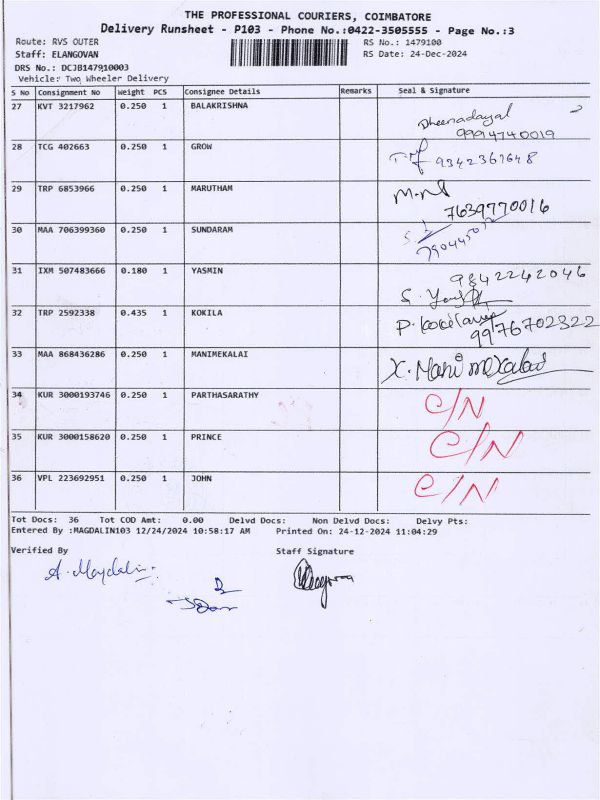 THE PROFESSIONAL COURIERS, COIMBATORE
Delivery Runsheet - P103 - Phone No.:0422-3505555 - Page No.:3
Route: RVS OUTER RS No.: 1479100
Staff: ELANGOVAN RS Date: 24-Dec-2024
DRS No.: DCJB147910003
Vehicle: Two Wheeler Delivery
S No Consignment No Weight PCS Consignee Details Remarks Seal & Signature
27 KVT 3217962 0.250 1 BALAKRISHNA Dheenadayal
9994740019
28 TCG 402663 0.250 1 GROW 9342361648
29 TRP 6853966 0.250 1 MARUTHAM
7639770016
30 MAA 706399360 0.250 1 SUNDARAM
31 IXM 507483666 0.180 1 YASMIN 9842242046
32 TRP 2592338 0.435 1 KOKILA P. Kokilavani
9976702322
33 MAA 868436286 0.250 1 MANIMEKALAI X. Manimekalai
34 KUR 3000193746 0.250 1 PARTHASARATHY C/N
35 KUR 3000158620 0.250 1 PRINCE C/N
36 VPL 223692951 0.250 1 JOHN C/N
Tot Docs: 36 Tot COD Amt: 0.00 Delvd Docs: Non Delvd Docs: Delvy Pts:
Entered By :MAGDALIN103 12/24/2024 10:58:17 AM Printed On: 24-12-2024 11:04:29
Verified By Staff Signature
A. Magdalin